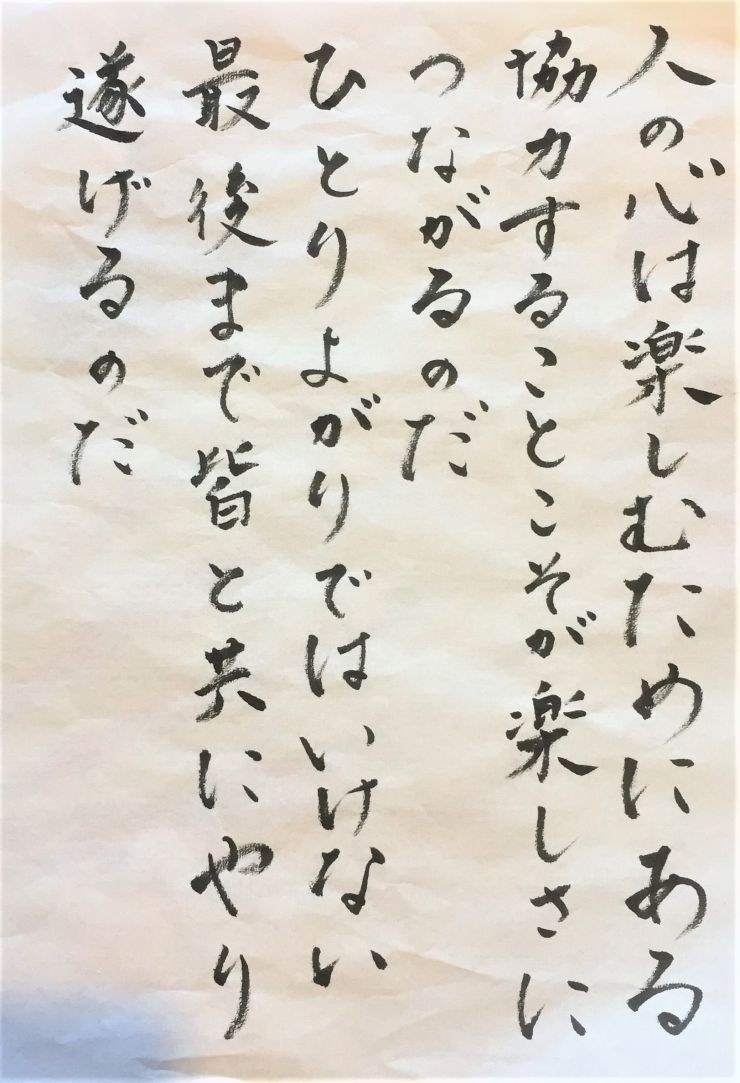 人の心は楽しむためにある
協力することこそが楽しさに
つながるのだ
ひとりよがりではいけない
最後まで皆と共にやり
遂げるのだ